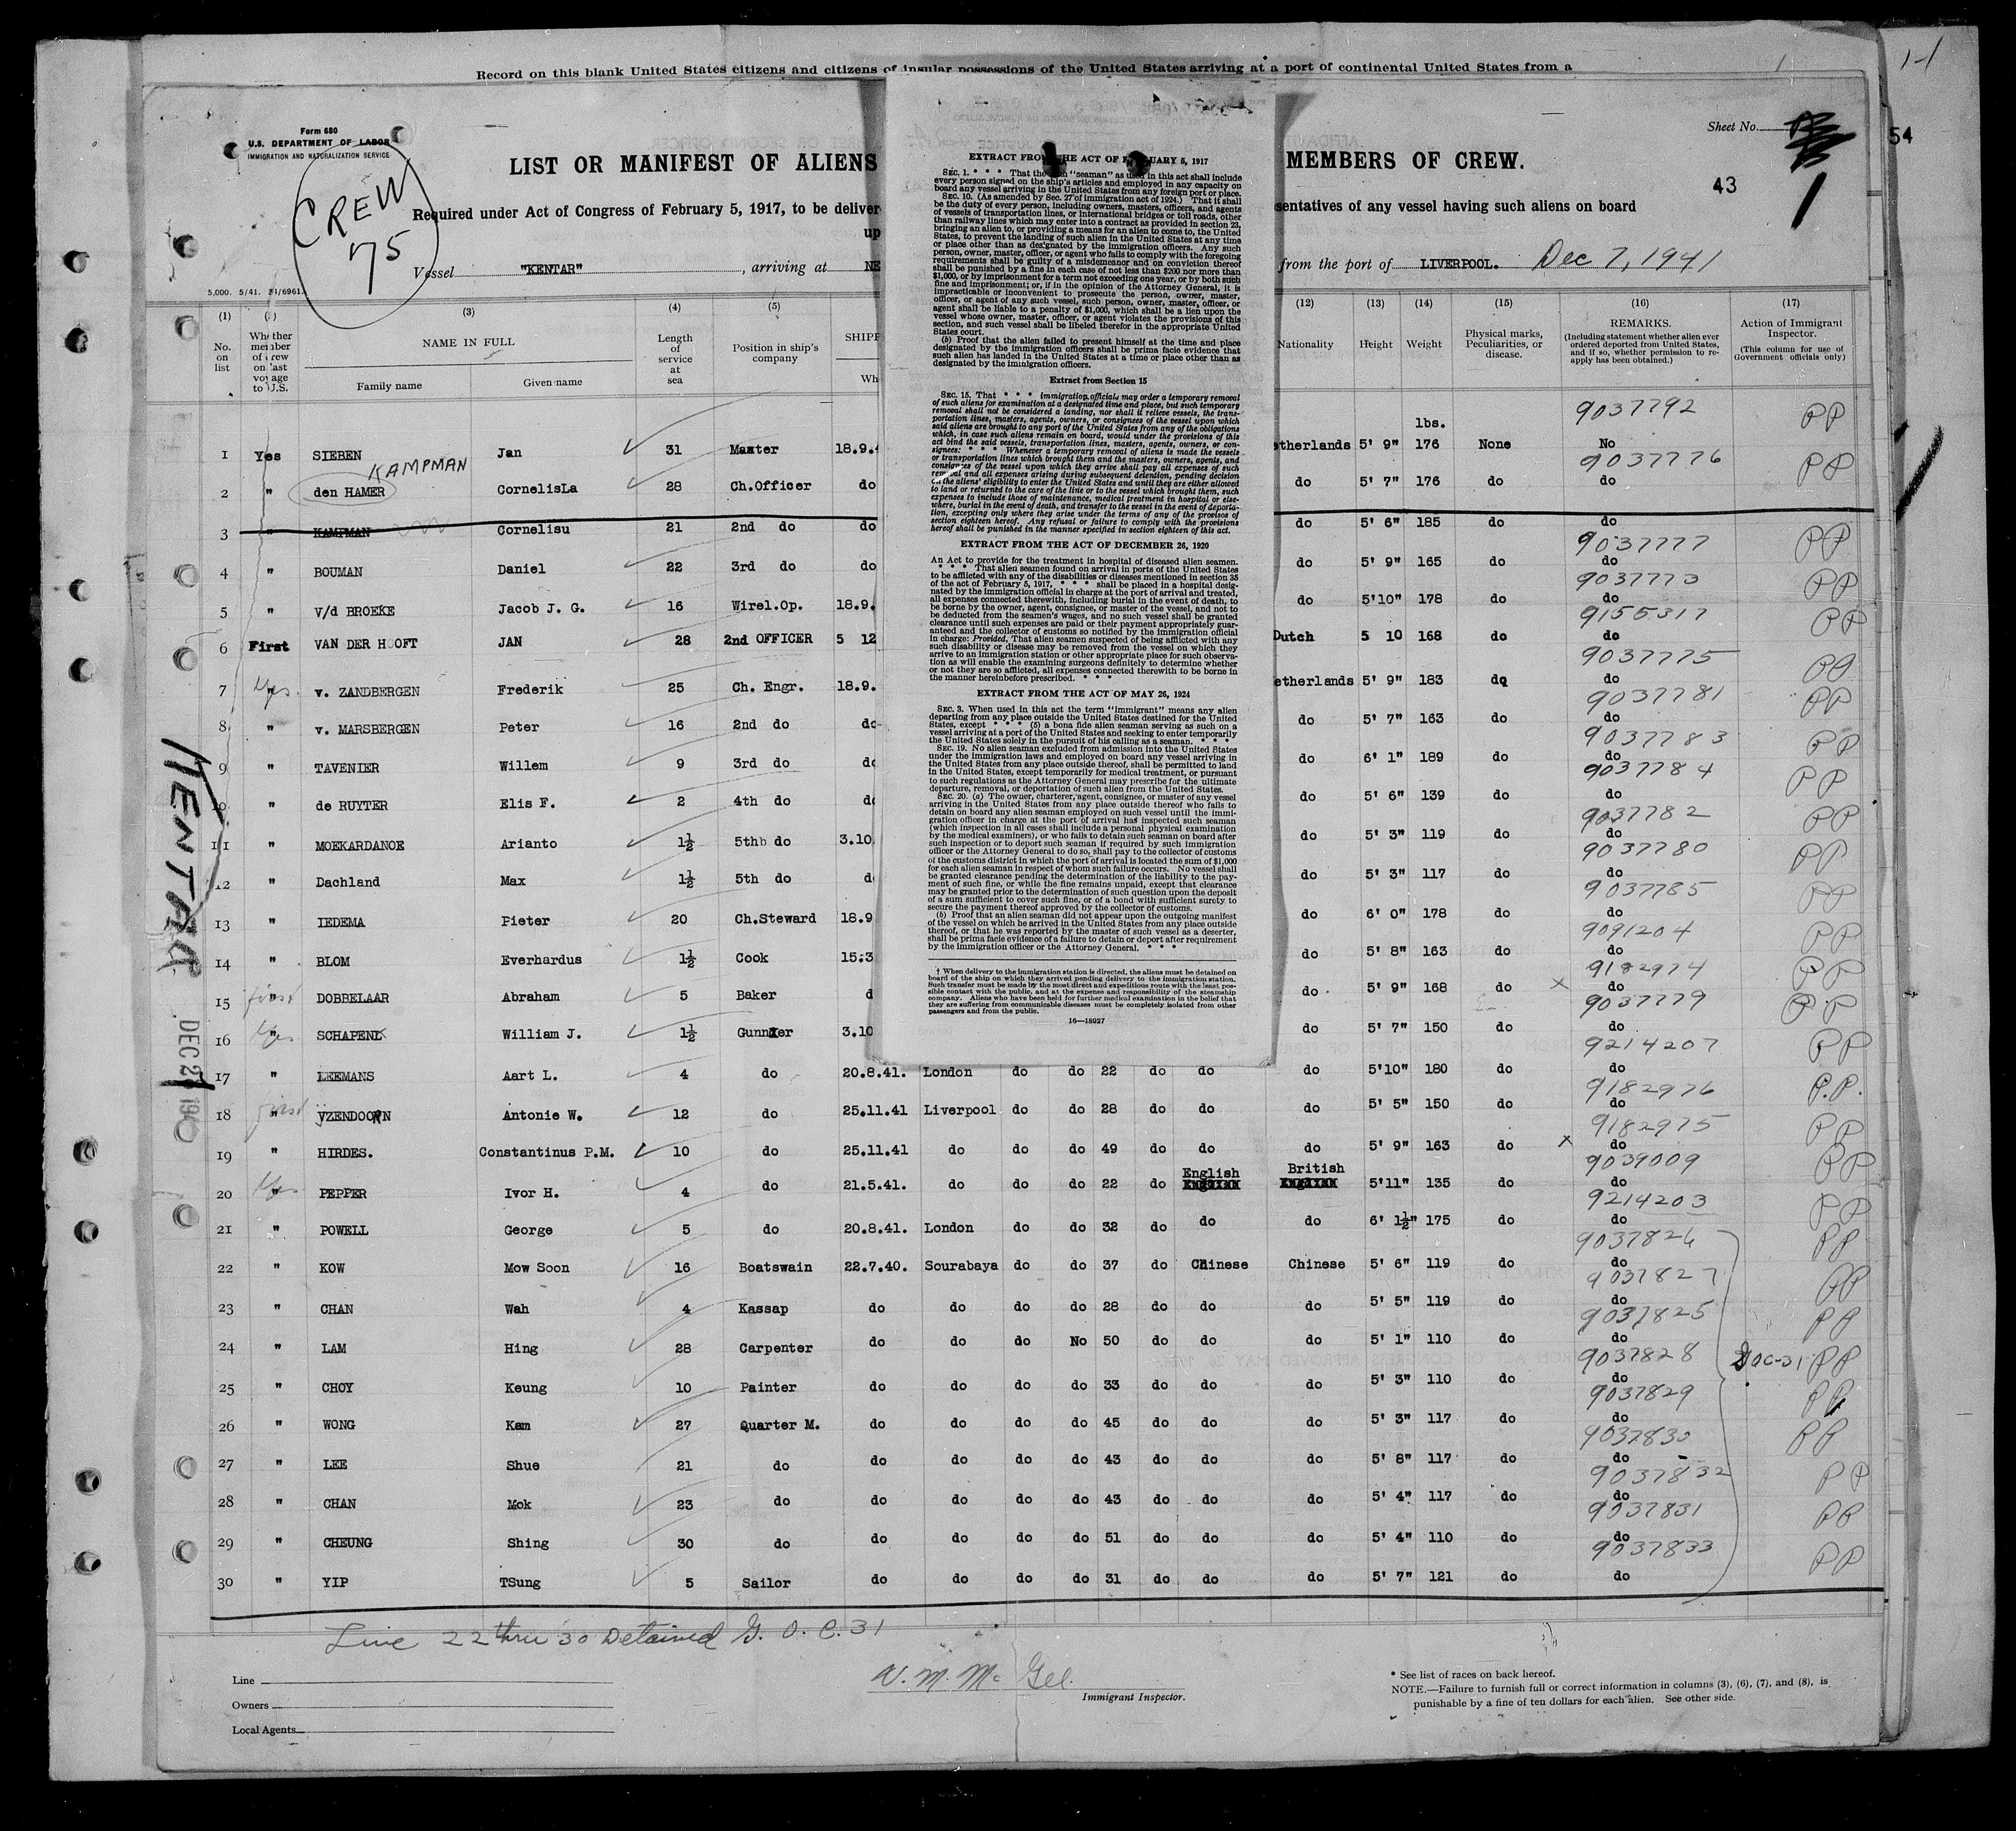 Record on this blank United States citizens and citizens of insular possessions of the United States arriving at a port of continental United States from a
Form 680
U.S. DEPARTMENT OF LABOR
IMMIGRATION AND NATURALIZATION SERVICE
Sheet No.
1
54
43
CREW
75
LIST OR MANIFEST OF ALIENS
MEMBERS OF CREW.
Required under Act of Congress of February 5, 1917, to be deliver
sentatives of any vessel having such aliens on board
up
Vessel "KENTAR", arriving at NE
from the port of LIVERPOOL. Dec 7, 1941
5,000. 5/41.
(1) (3) (4) (5)
No. on list
Whether member of crew on last voyage to U.S.
NAME IN FULL
Family name Given name
Length of service at sea
Position in ship's company
SHIPP
Wh
(12) (13) (14) (15) (16) (17)
Nationality
Height
Weight
Physical marks, Peculiarities, or disease.
REMARKS.
(Including statement whether alien ever ordered deported from United States, and if so, whether permission to reapply has been obtained.)
Action of Immigrant Inspector.
(This column for use of Government officials only)
EXTRACT FROM THE ACT OF FEBRUARY 5, 1917
SEC. 1. * * * That the term "seaman" as used in this act shall include
every person signed on the ship's articles and employed in any capacity on
board any vessel arriving in the United States from any foreign port or place.
SEC. 10. (As amended by Sec. 27 of immigration act of 1924.) That it shall
be the duty of every person, including owners, masters, officers, and agents
of vessels of transportation lines, or international bridges or toll roads, other
than railway lines which may enter into a contract as provided in section 23,
bringing an alien to, or providing a means for an alien to come to, the United
States, to prevent the landing of such alien in the United States at any time
or place other than as designated by the immigration officers. Any such
person, owner, master, officer, or agent who fails to comply with the foregoing
requirements shall be guilty of a misdemeanor and on conviction thereof
shall be punished by a fine in each case of not less than $200 nor more than
$1,000, or by imprisonment for a term not exceeding one year, or by both such
fine and imprisonment; or, if in the opinion of the Attorney General, it is
impracticable or inconvenient to prosecute the person, owner, master,
officer, or agent of any such vessel, such person, owner, master, officer, or
agent shall be liable to a penalty of $1,000, which shall be a lien upon the
vessel whose owner, master, officer, or agent violates the provisions of this
section, and such vessel shall be libeled therefor in the appropriate United
States court.
(b) Proof that the alien failed to present himself at the time and place
designated by the immigration officers shall be prima facie evidence that
such alien has landed in the United States at a time or place other than as
designated by the immigration officers.
Extract from Section 15
SEC. 15. That * * * immigration officials may order a temporary removal
of such aliens for examination at a designated time and place, but such temporary
removal shall not be considered a landing, nor shall it relieve vessels, the trans-
portation lines, masters, agents, owners, or consignees of the vessel upon which
said aliens are brought to any port of the United States from any of the obligations
which, in case such aliens remain on board, would under the provisions of this
act bind the said vessels, transportation lines, masters, agents, owners, or con-
signees: * * * Whenever a temporary removal of aliens is made the vessels
or transportation lines which brought them and the masters, owners, agents, and
consignees of the vessel upon which they arrive shall pay all expenses of such
removal and all expenses arising during subsequent detention, pending decision
on the aliens' eligibility to enter the United States and until they are either allowed
to land or returned to the care of the line or to the vessel which brought them, such
expenses to include those of maintenance, medical treatment in hospital or else-
where, burial in the event of death, and transfer to the vessel in the event of deporta-
tion, excepting only where they arise under the terms of any of the provisos of
section eighteen hereof. Any refusal or failure to comply with the provisions
hereof shall be punished in the manner specified in section eighteen of this act.
EXTRACT FROM THE ACT OF DECEMBER 26, 1920
An Act to provide for the treatment in hospital of diseased alien seamen.
* * * That alien seamen found on arrival in ports of the United States
to be afflicted with any of the disabilities or diseases mentioned in section 35
of the act of February 5, 1917, * * * shall be placed in a hospital desig-
nated by the immigration official in charge at the port of arrival and treated,
all expenses connected therewith, including burial in the event of death, to
be borne by the owner, agent, consignee, or master of the vessel, and not to
be deducted from the seamen's wages, and no such vessel shall be granted
clearance until such expenses are paid or their payment appropriately guar-
anteed and the collector of customs so notified by the immigration official
in charge: Provided, That alien seamen suspected of being afflicted with any
such disability or disease may be removed from the vessel on which they
arrive to an immigration station or other appropriate place for such observa-
tion as will enable the examining surgeons definitely to determine whether
or not they are so afflicted, all expenses connected therewith to be borne in
the manner hereinbefore prescribed. * * *
EXTRACT FROM THE ACT OF MAY 26, 1924
SEC. 3. When used in this act the term "immigrant" means any alien
departing from any place outside the United States destined for the United
States, except * * * (5) a bona fide alien seaman serving as such on a
vessel arriving at a port of the United States and seeking to enter temporarily
the United States solely in the pursuit of his calling as a seaman. * * *
SEC. 19. No alien seaman excluded from admission into the United States
under the immigration laws and employed on board any vessel arriving in
the United States from any place outside thereof, shall be permitted to land
in the United States, except temporarily for medical treatment, or pursuant
to such regulations as the Attorney General may prescribe for the ultimate
departure, removal, or deportation of such alien from the United States.
SEC. 20. (a) The owner, charterer, agent, consignee, or master of any vessel
arriving in the United States from any place outside thereof who fails to
detain on board any alien seaman employed on such vessel until the immi-
gration officer in charge at the port of arrival has inspected such seaman
(which inspection in all cases shall include a personal physical examination
by the medical examiners), or who fails to detain such seaman on board after
such inspection or to deport such seaman if required by such immigration
officer or the Attorney General to do so, shall pay to the collector of customs
of the customs district in which the port of arrival is located the sum of $1,000
for each alien seaman in respect of whom such failure occurs. No vessel shall
be granted clearance pending the determination of the liability to the pay-
ment of such fine, or while the fine remains unpaid, except that clearance
may be granted prior to the determination of such question upon the deposit
of a sum sufficient to cover such fine, or of a bond with sufficient surety to
secure the payment thereof approved by the collector of customs.
(b) Proof that an alien seaman did not appear upon the outgoing manifest
of the vessel on which he arrived in the United States from any place outside
thereof, or that he was reported by the master of such vessel as a deserter,
shall be prima facie evidence of a failure to detain or deport after requirement
by the immigration officer or the Attorney General. * * *
† When delivery to the immigration station is directed, the aliens must be detained on
board of the ship on which they arrived pending delivery to the immigration station.
Such transfer must be made by the most direct and expeditious route with the least pos-
sible contact with the public, and at the expense and responsibility of the steamship
company. Aliens who have been held for further medical examination in the belief that
they are suffering from communicable diseases must be completely isolated from other
passengers and from the public.
16—18927
lbs. 9037792 PP
1 Yes SIEBEN Jan 31 Master 18.9. etherlands 5' 9" 176 None No
KAMPMAN 9037776 PP
2 " den HAMER CornelisLa 28 Ch.Officer do do 5' 7" 176 do do
3 " KAMPMAN Cornelisu 21 2nd do do do 5' 6" 185 do do
9037777 PP
4 " BOUMAN Daniel 22 3rd do do do 5' 9" 165 do do
9037773 PP
5 " v/d BROEKE Jacob J. G. 16 Wirel.Op. 18.9. do 5'10" 178 do do
9155317 PP
6 First VAN DER HOOFT JAN 28 2nd OFFICER 5 12 Dutch 5 10 168 do do
9037775 PP
7 Yes v. ZANDBERGEN Frederik 25 Ch. Engr. 18.9. etherlands 5' 9" 183 do do
9037781 PP
8 " v. MARSBERGEN Peter 16 2nd do do do 5' 7" 163 do do
9037783 PP
9 " TAVENIER Willem 9 3rd do do do 6' 1" 189 do do
9037784 PP
10 " de RUYTER Elis F. 2 4th do do do 5' 6" 139 do do
9037782 PP
11 " MOEKARDANOE Arianto 1½ 5thb do 3.10 do 5' 3" 119 do do
9037780 PP
12 " Dachland Max 1½ 5th do d do 5' 3" 117 do do
9037785 PP
13 " IEDEMA Pieter 20 Ch.Steward 18.9 do 6' 0" 178 do do
9091204 PP
14 " BLOM Everhardus 1½ Cook 15.3 do 5' 8" 163 do do
9182974 PP
15 first DOBBELAAR Abraham 5 Baker d do 5' 9" 168 do x do
9037779 PP
16 Yes SCHAPENK William J. 1½ Gunner 3.10 do 5' 7" 150 do do
9214207 PP
17 " LEEMANS Aart L. 4 do 20.8.41. London do do 22 do do do 5'10" 180 do do
9182976 P.P.
18 first YZENDOORN Antonie W. 12 do 25.11.41 Liverpool do do 28 do do do 5' 5" 150 do do
9182975 PP
19 " HIRDES. Constantinus P.M. 10 do 25.11.41 do do do 49 do do do 5' 9" 163 do x do
English British 9039009 PP
20 Yes PEPPER Ivor H. 4 do 21.5.41. do do do 22 do 5'11" 135 do do
9214203 PP
21 " POWELL George 5 do 20.8.41. London do do 32 do do do 6' 1½" 175 do do
9037826 PP
22 " KOW Mow Soon 16 Boatswain 22.7.40. Sourabaya do do 37 do Chinese Chinese 5' 6" 119 do do
9037827 PP
23 " CHAN Wah 4 Kassap do do do do 28 do do do 5' 5" 119 do do
9037825 PP
24 " LAM Hing 28 Carpenter do do do No 50 do do do 5' 1" 110 do do
9037828 GOC-31 PP
25 " CHOY Keung 10 Painter do do do do 33 do do do 5' 3" 110 do do
9037829 PP
26 " WONG Kam 27 Quarter M. do do do do 45 do do do 5' 3" 117 do do
9037830 PP
27 " LEE Shue 21 do do do do do 43 do do do 5' 8" 117 do do
9037832 PP
28 " CHAN Mok 23 do do do do do 43 do do do 5' 4" 117 do do
9037831 PP
29 " CHEUNG Shing 30 do do do do do 51 do do do 5' 4" 110 do do
9037833 PP
30 " YIP TSung 5 Sailor do do do do 31 do do do 5' 7" 121 do do
KENTAR
Line 22 thru 30 Detained G. O. C. 31
Line
Owners
Local Agents
W. M. McGee
Immigrant Inspector.
* See list of races on back hereof.
NOTE.—Failure to furnish full or correct information in columns (3), (6), (7), and (8), is
punishable by a fine of ten dollars for each alien. See other side.